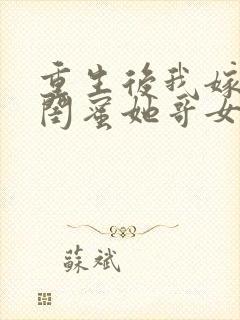 重生後我嫁
閨蜜她哥女
蘇斌